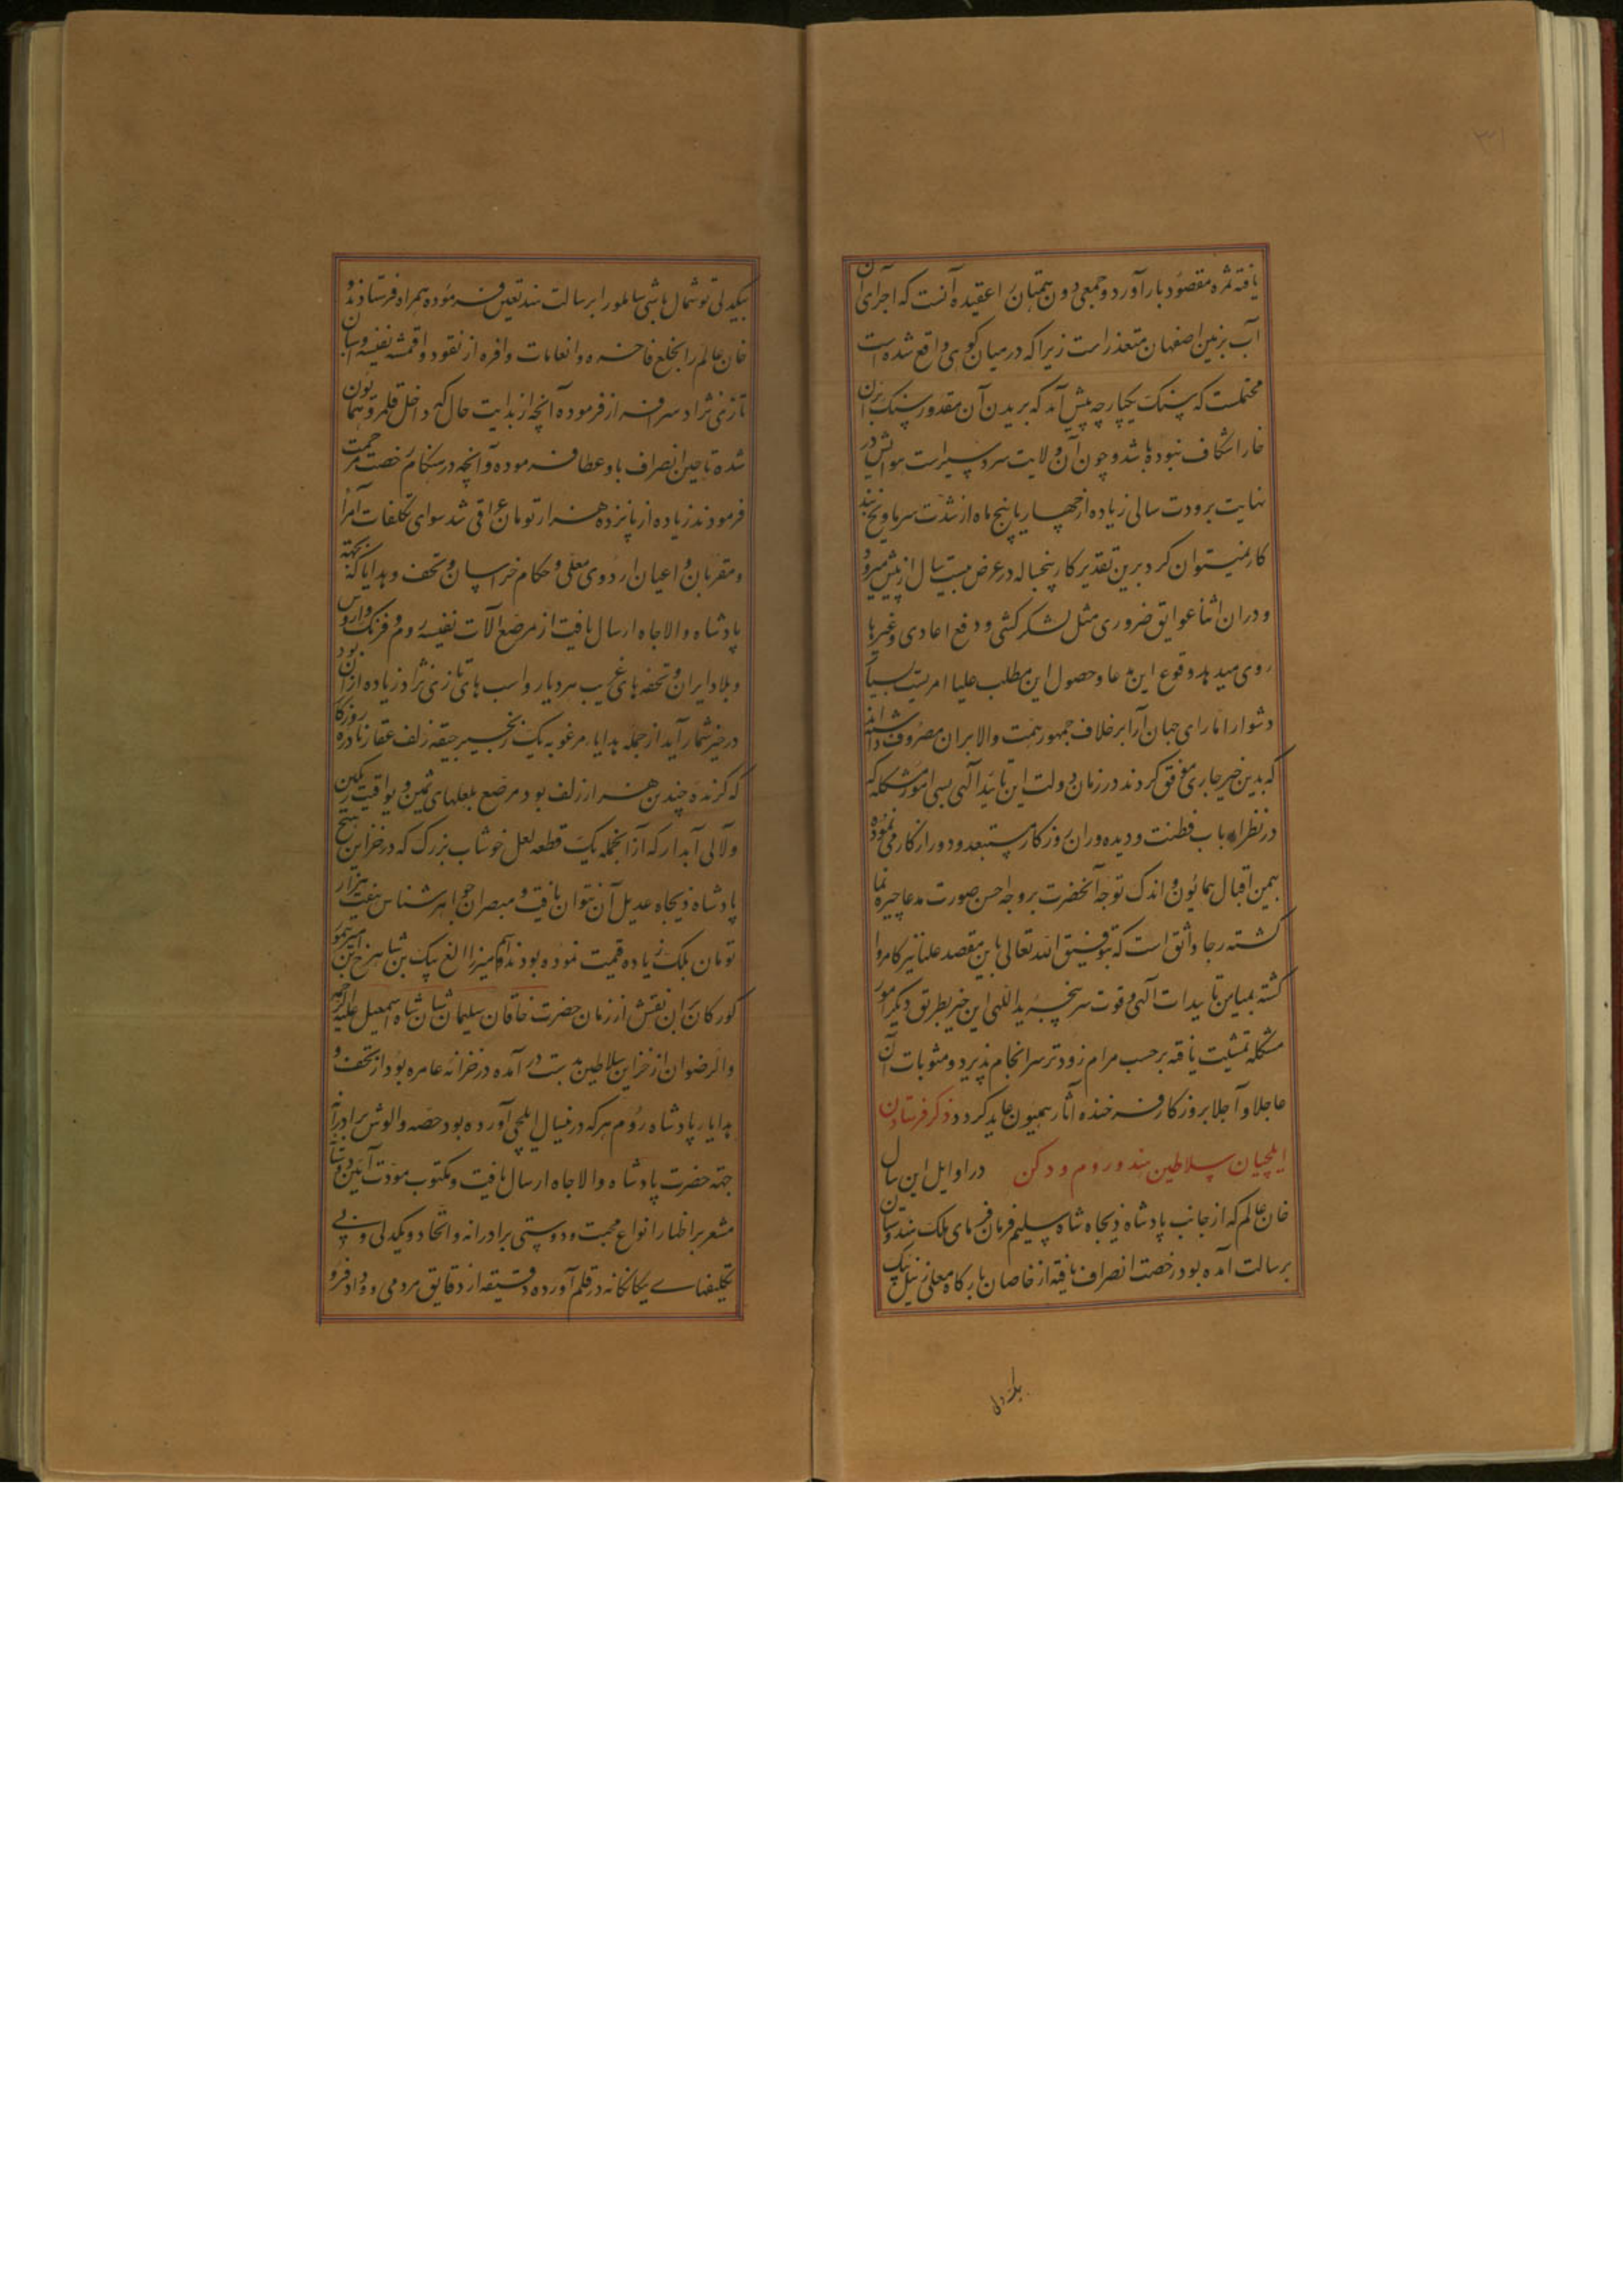 یافته ثمره مقصود بار آورد و جمعی دون همتان را عقیده آنست که اجرای آن
آب بزمین اصفهان متعذر است زیرا که در میان کوهی واقع شده است
محتملست که سنک یکپارچه پیش آمد که بریدن آن مقدور سنک بران
خارا شکاف نبوده باشد و چون آن ولایت سردسیر است هوایش در
نهایت برودت سالی زیاده از چهار یا پنج ماه از شدت سرما و یخ بند
کار نمیتوان کرد برین تقدیر کار پنجساله در عرض بیست سال از پیش میرود
و در ان اثنا عوایق ضروری مثل لشکر کشی و دفع اعادی و غیرها
روی میدهد وقوع این مدعا و حصول این مطلب علیا امریست بسیار
دشوار اما رای جهان آرا بر خلاف جمهور همت والا بران مصروف داشته اند
که بدین خیر جاری موفق کردند در زمان دولت این تائید الهی بسی امور مشکله که
در نظر ارباب فطنت و دیده وران روزکار مستبعد و دور از کار می نموده
بیمن اقبال همایون و اندک توجه آنحضرت بروجه احسن صورت مدعا چهره نما
کشته رجا واثق است که بتوفیق الله تعالی باین مقصد علیا نیز کامروا
کشته بمیامن تاییدات الهی و قوت سر پنجه ید اللهی این خیر بطریق دیکر امور
مشکله تمشیت یافته بر حسب مرام زودتر سرانجام پذیرد و مثوبات آن
عاجلا و آجلا بروزکار فرخنده آثار همیون عاید کردد ذکر فرستادن
ایلچیان سلاطین هند و روم و دکن در اوایل این سال
خان عالم که از جانب پادشاه ذیجاه شاه سلیم فرمان فرمای ملک هندوستان
برسالت آمده بود رخصت انصراف یافته از خاصان بارکاه معلی زینل بیک
بیکدلی
بیکدلی توشمال باشی شاملو را برسالت هند تعیین فرموده همراه فرستادند و
خان عالم را بخلع فاخره و انعامات وافره از نقود و اقمشه نفیسه و اسبان
تازی نژاد سرافراز فرموده آنچه از بدایت حال که داخل قلمرو همایون
شده تا حین انصراف باو عطا فرموده و آنچه در هنکام رخصت مرحمت
فرمودند زیاده از پانزده هزار تومان عراقی شد سوای تکلفات امرا
و مقربان و اعیان اردوی معلی و حکام خراسان و تحف و هدایا که بجهة
پادشاه والا جاه ارسال یافت از مرصع آلات نفیسه روم و فرنک و اروس
و بلاد ایران و تحفه های غریب هر دیار و اسب های تازی نژاد زیاده از ان بود
در حیز شمار آید از جمله هدایا مرغوبه یک زنجیر جیقه زلف عقار نادره روزکار
که کزنده چندین هزار زلف بود مرصع بلعلهای ثمین و یواقیت رنکین
و لآلی آبدار که از آنجمله یک قطعه لعل خوشاب بزرک که در خزاین هیچ
پادشاه ذیجاه عدیل آن نتوان یافت و مبصران جواهر شناس هفت هزار
تومان بلک زیاده قیمت نموده بودند اسم میرزا الغ بیک بن شاهرخ بن امیر تیمور
کورکان بران نقش از زمان حضرت خاقان سلیمان شان شاه اسمعیل علیه الرحمه
والرضوان از خزاین سلاطین بدست در آمده در خزانه عامره بود از تحف و
هدایا پادشاه روم هر که درینسال ایلچی آورده بود حصه و الوش برادرانه
جهته حضرت پادشاه والا جاه ارسال یافت و مکتوب مودت آئین دوستانه
مشعر بر اظهار انواع محبت و دوستی برادرانه و اتحاد و یکدلی و بی
تکلیفهاے یکانکانه در قلم آورده دقیقه از دقایق مردمی و وداد فرو